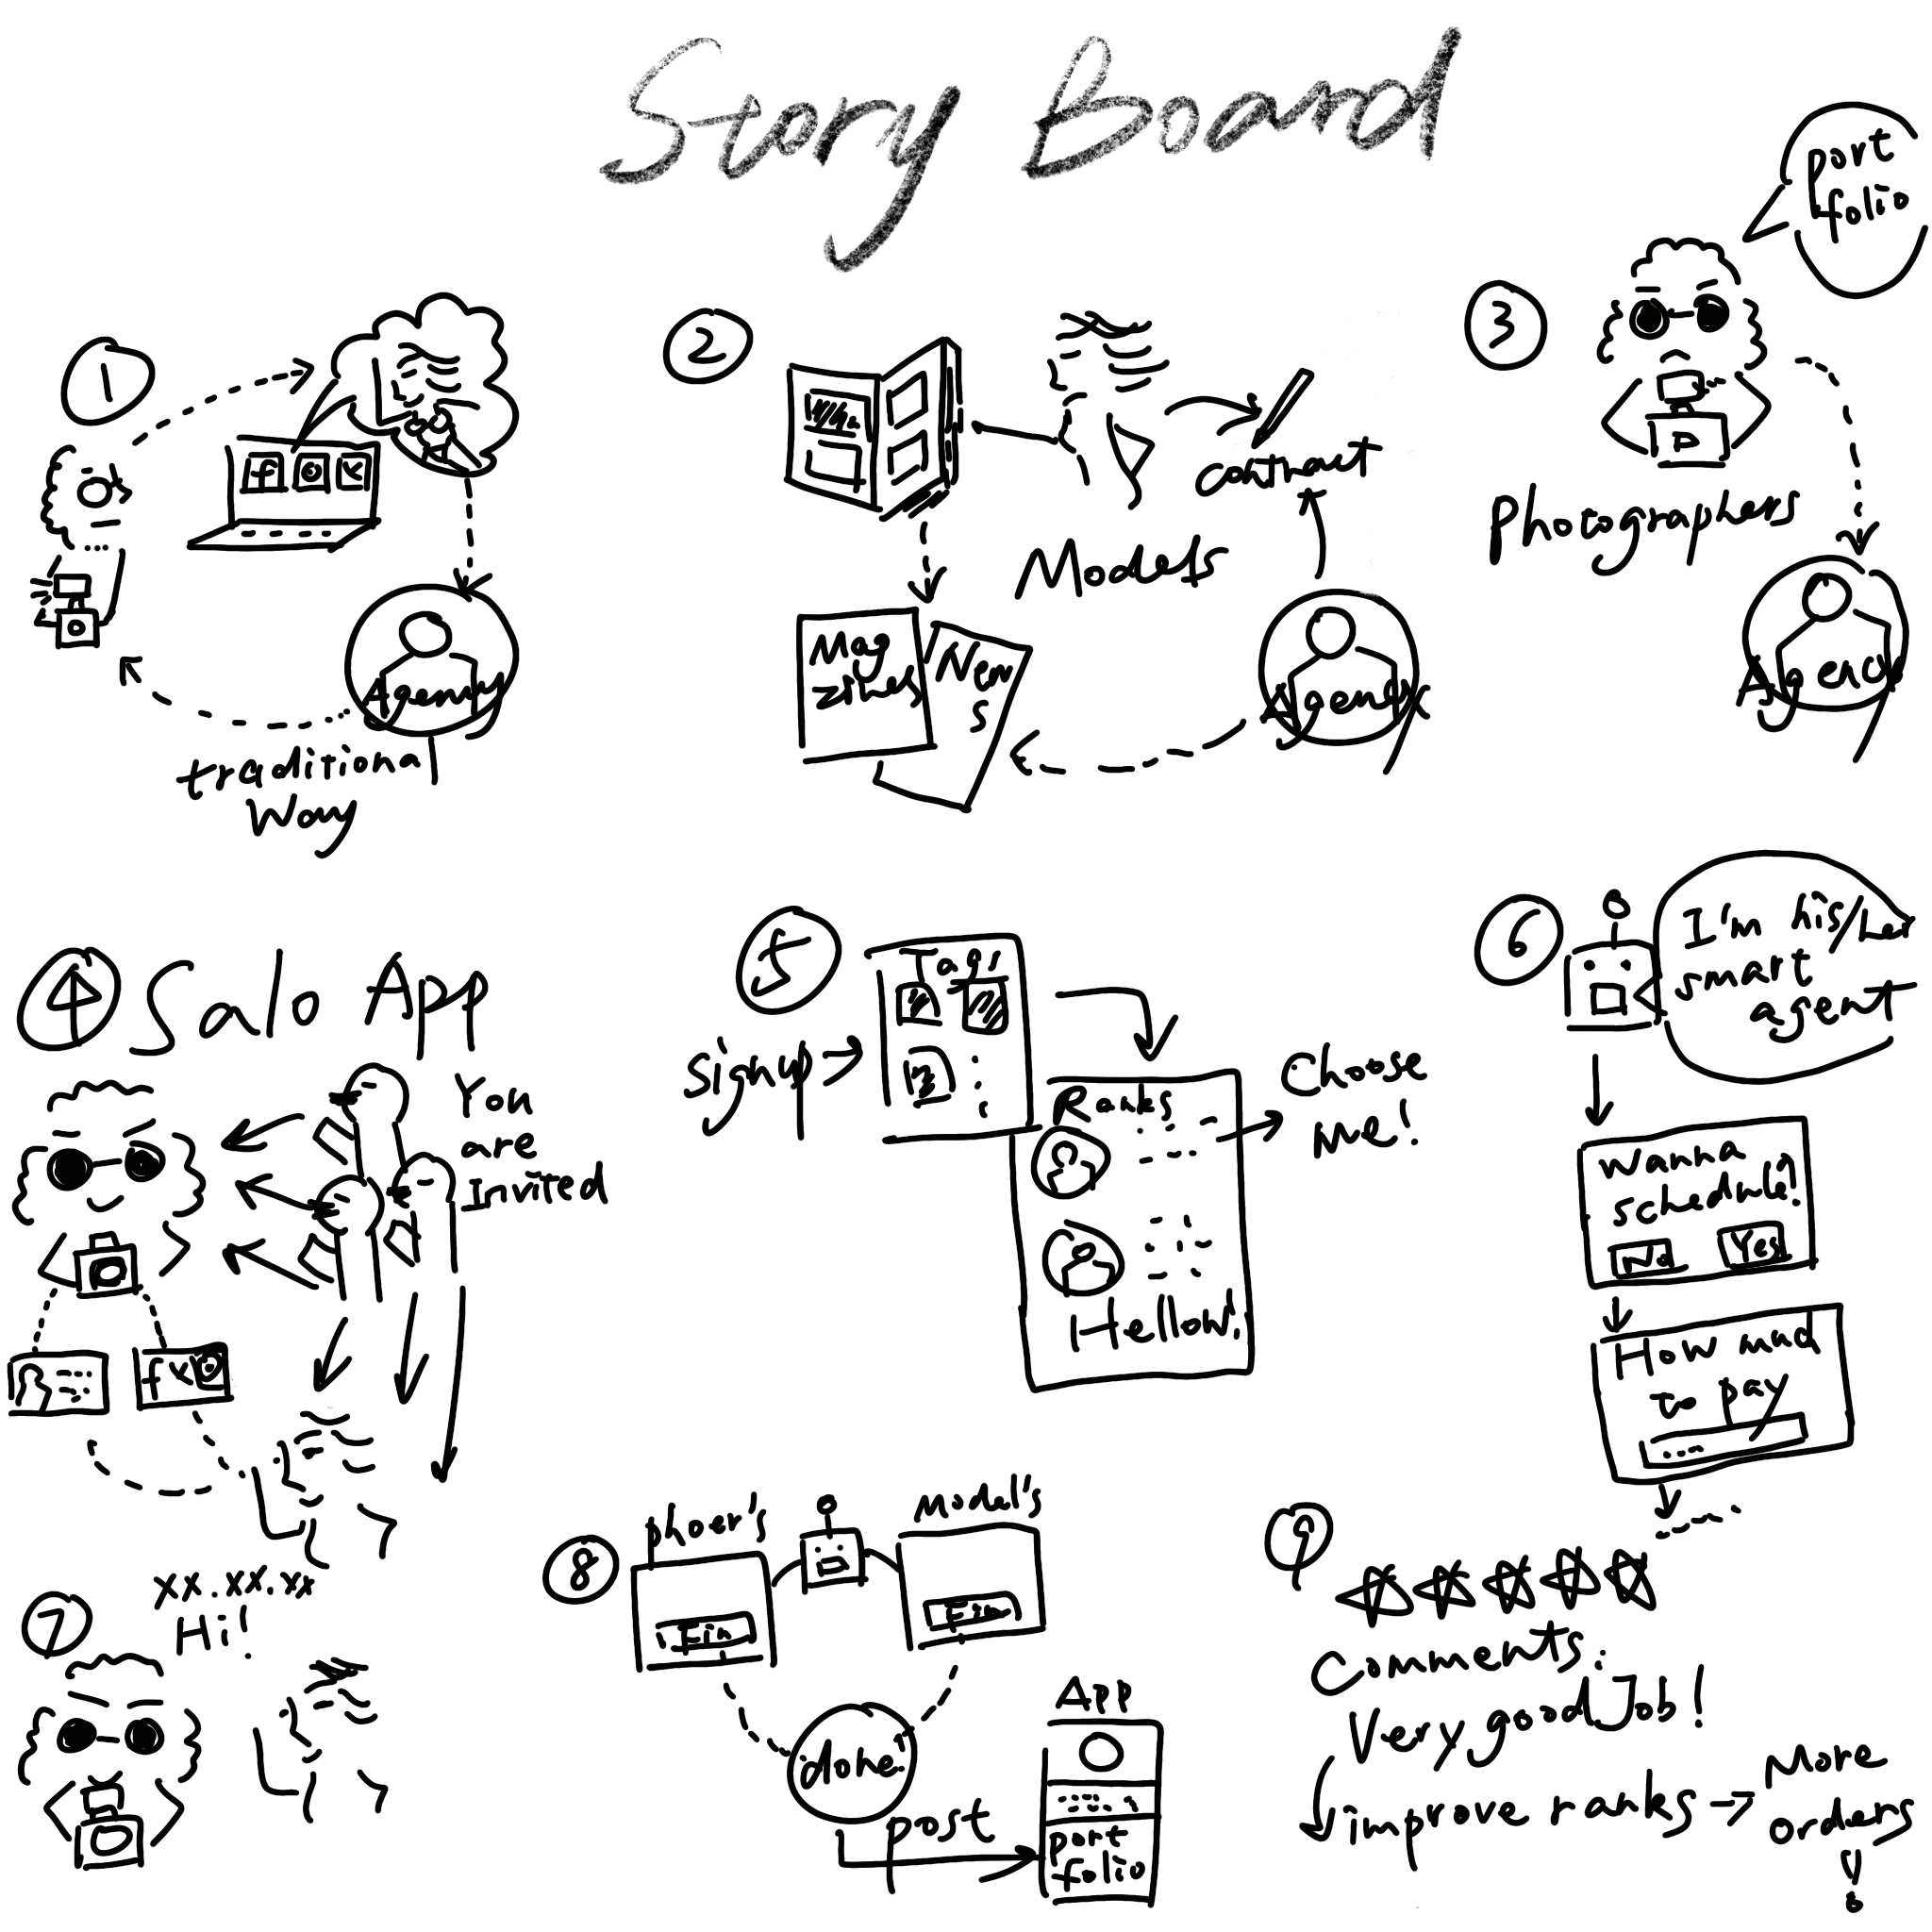 Story Board
1
traditiona
way
Agency
f
2
contract
Models
Mag
zines
News
Agency
3
port
folio
Photographers
Agency
4 Salo App
You
are
Invited
f x
5
Signup
Tags
Ranks
Hellow!
Choose
me!
6
I'm his/her
smart
agent
Wanna
schedule?
No Yes
How mud
to pay
7
xx.xx.xx
Hi!
8
phoer's
Model's
Fin
Fin
done!
post
APP
port
folio
9
comments:
Very good Job!
improve ranks → More
orders
!